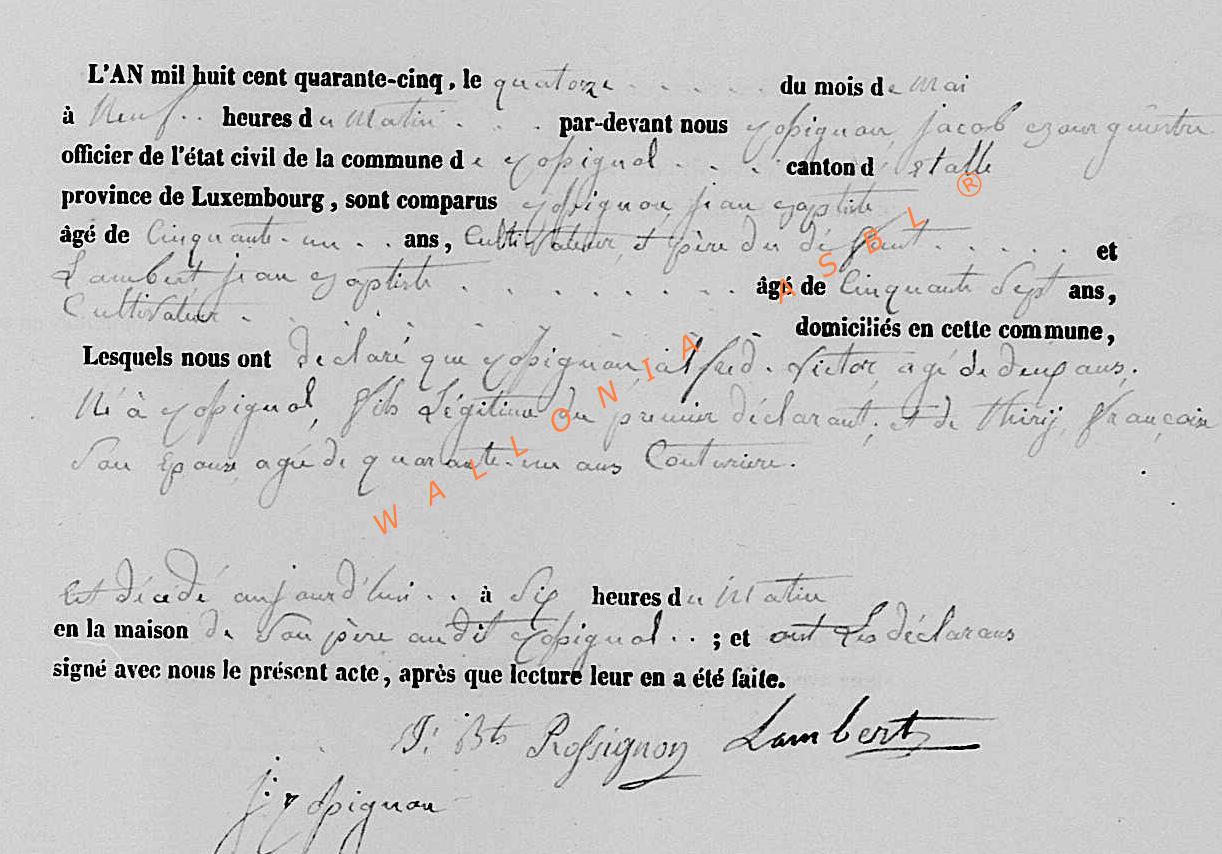 L'AN mil huit cent quarante-cinq, le quatorze . . . . . du mois de Mai
à Neuf . . heures du Matin . . . par-devant nous Rossignon, Jacob
officier de l'état civil de la commune de Rossignol . . . canton d'Etalle
province de Luxembourg, sont comparus Rossignon, jean Baptiste
âgé de Cinquante-un . . ans, Cultivateur, et père du défunt . . . . . et
Lambert, jean Baptiste . . . . . . . . âgé de Cinquante Sept ans,
Cultivateur . . . . . . . . . domiciliés en cette commune,
Lesquels nous ont déclaré que Rossignon, alfred-Victor, agé de deux ans,
Né à Rossignol, fils Légitime du premier déclarant, et de thiry, françoise
Son Epouse, agée de quarante-un ans Couturière.
Est décédé aujourd'hui . . à Six heures du Matin
en la maison de Son père audit Rossignol . . ; et ont Les déclarans
signé avec nous le présent acte, après que lecture leur en a été faite.
J. Bte Rossignon Lambert
j. Rossignon
WALLONIA ASBL ®